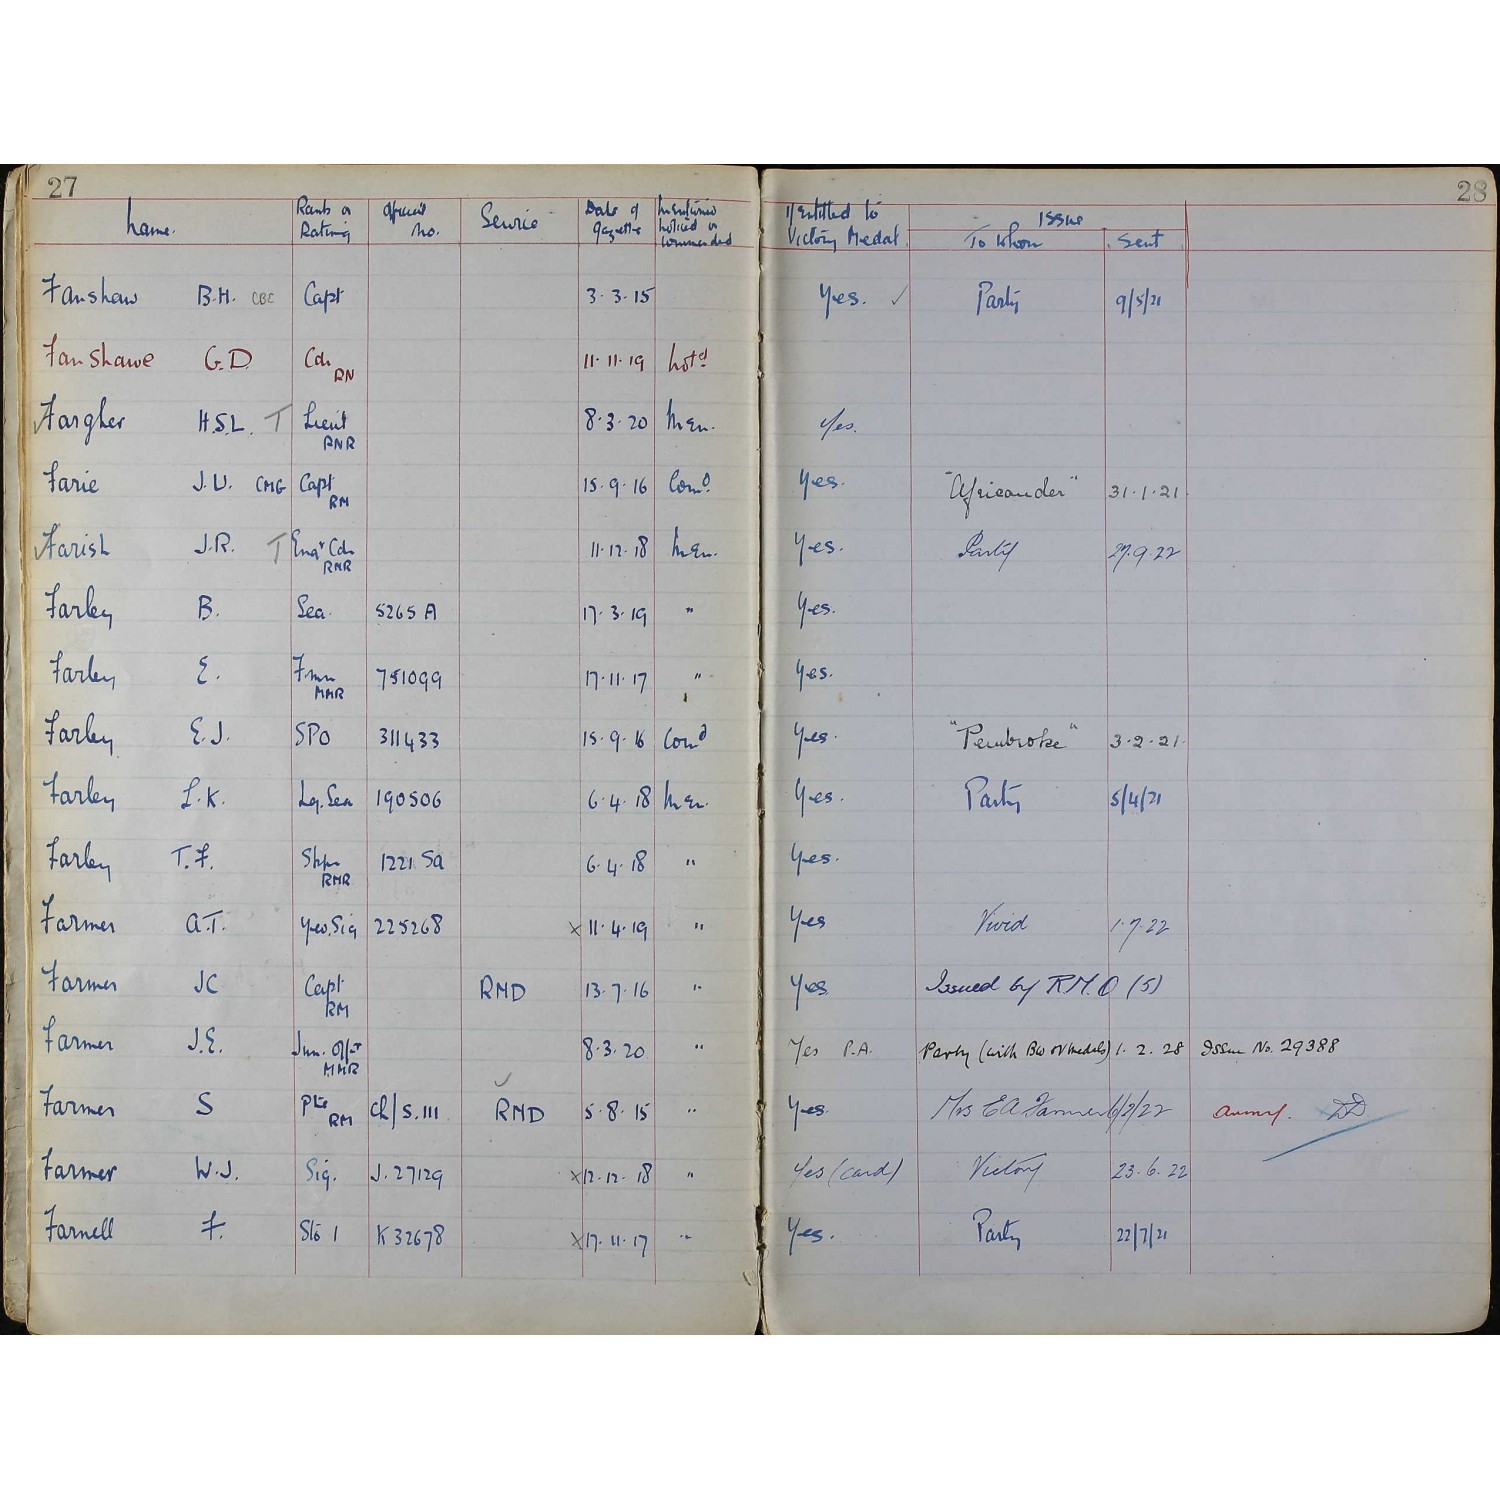 27
28
Name. Rank or Rating Official No. Service Date of Gazette Mentioned Noticed or Commended If entitled to Victory Medal Issue To Whom Sent
Fanshaw B.H. CBE Capt 3.3.15 Yes. ✓ Party 9/5/21
Fanshawe G.D. Cdr RN 11.11.19 Notd
Fargher H.S.L. T Lieut RNR 8.3.20 Men. Yes.
Farie J.U. CMG Capt RM 15.9.16 Comd. Yes. "Africander" 31.1.21
Farish J.R. T Engr Cdr RNR 11.12.18 Men. Yes. Party 27.9.22
Farley B. Sea. 5265 A 17.3.19 " Yes.
Farley E. Fmn MMR 751099 17.11.17 " Yes.
Farley E.J. SPO 311433 15.9.16 Comd Yes. "Pembroke" 3.2.21.
Farley L.K. Lg. Sea 190506 6.4.18 Men. Yes. Party 5/4/21
Farley T.F. RMR 1221 Sa 6.4.18 " Yes.
Farmer A.T. Yeo. Sig 225268 x 11.4.19 " Yes Vivid 1.7.22
Farmer JC Capt RM RMD 13.7.16 " Yes Issued by R.M.O (5)
Farmer J.E. MMR 8.3.20 " Yes P.A. Party (with BW & V medals) 1.2.28 Issue No. 29388
Farmer S Pte RM Ch/S.111 ✓ RMD 5.8.15 " Yes. Mrs E A Farmer 6/2/22
Farmer W.J. Sig. J.27129 x 12.12.18 " Yes (card) Victory 23.6.22
Farnell F. Sto 1 K 32678 x 17.11.17 " Yes. Party 22/7/21